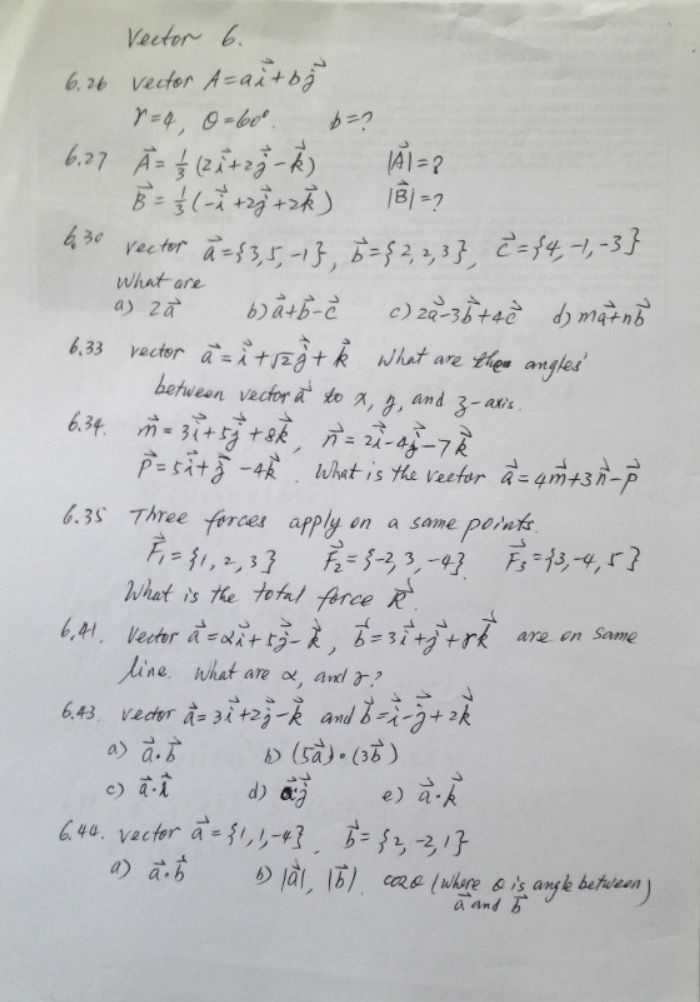 Vector 6.
6.26 vector A = ai⃗ + bj⃗
r=4, θ=60°. b=?
6.27 A⃗ = 1/3 (2i⃗+2j⃗-k⃗) |A⃗|=?
B⃗ = 1/3 (-i⃗+2j⃗+2k⃗) |B⃗|=?
6.30 vector a⃗={3,5,-1}, b⃗={2,2,3}, c⃗={4,-1,-3}
What are
a) 2a⃗ b) a⃗+b⃗-c⃗ c) 2a⃗-3b⃗+4c⃗ d) ma⃗+nb⃗
6.33 vector a⃗ = i⃗+√2j⃗+k⃗ What are the angles'
between vector a⃗ to x, y, and z-axis.
6.34. m⃗ = 3i⃗+5j⃗+8k⃗, n⃗ = 2i⃗-4j⃗-7k⃗
p⃗ = 5i⃗+j⃗-4k⃗. What is the vector a⃗ = 4m⃗+3n⃗-p⃗
6.35 Three forces apply on a same points.
F⃗₁={1,2,3} F⃗₂={-2,3,-4} F⃗₃={3,-4,5}
What is the total force R⃗
6.41. Vector a⃗=αi⃗+5j⃗-k⃗, b⃗=3i⃗+j⃗+γk⃗ are on same
line. What are α, and γ?
6.43. vector a⃗=3i⃗+2j⃗-k⃗ and b⃗=i⃗-j⃗+2k⃗
a) a⃗·b⃗ b) (5a⃗)·(3b⃗)
c) a⃗·i⃗ d) a⃗·j⃗ e) a⃗·k⃗
6.44. vector a⃗ = {1,1,-4}, b⃗ = {2,-2,1}
a) a⃗·b⃗ b) |a⃗|, |b⃗|. cosθ (where θ is angle between)
a⃗ and b⃗